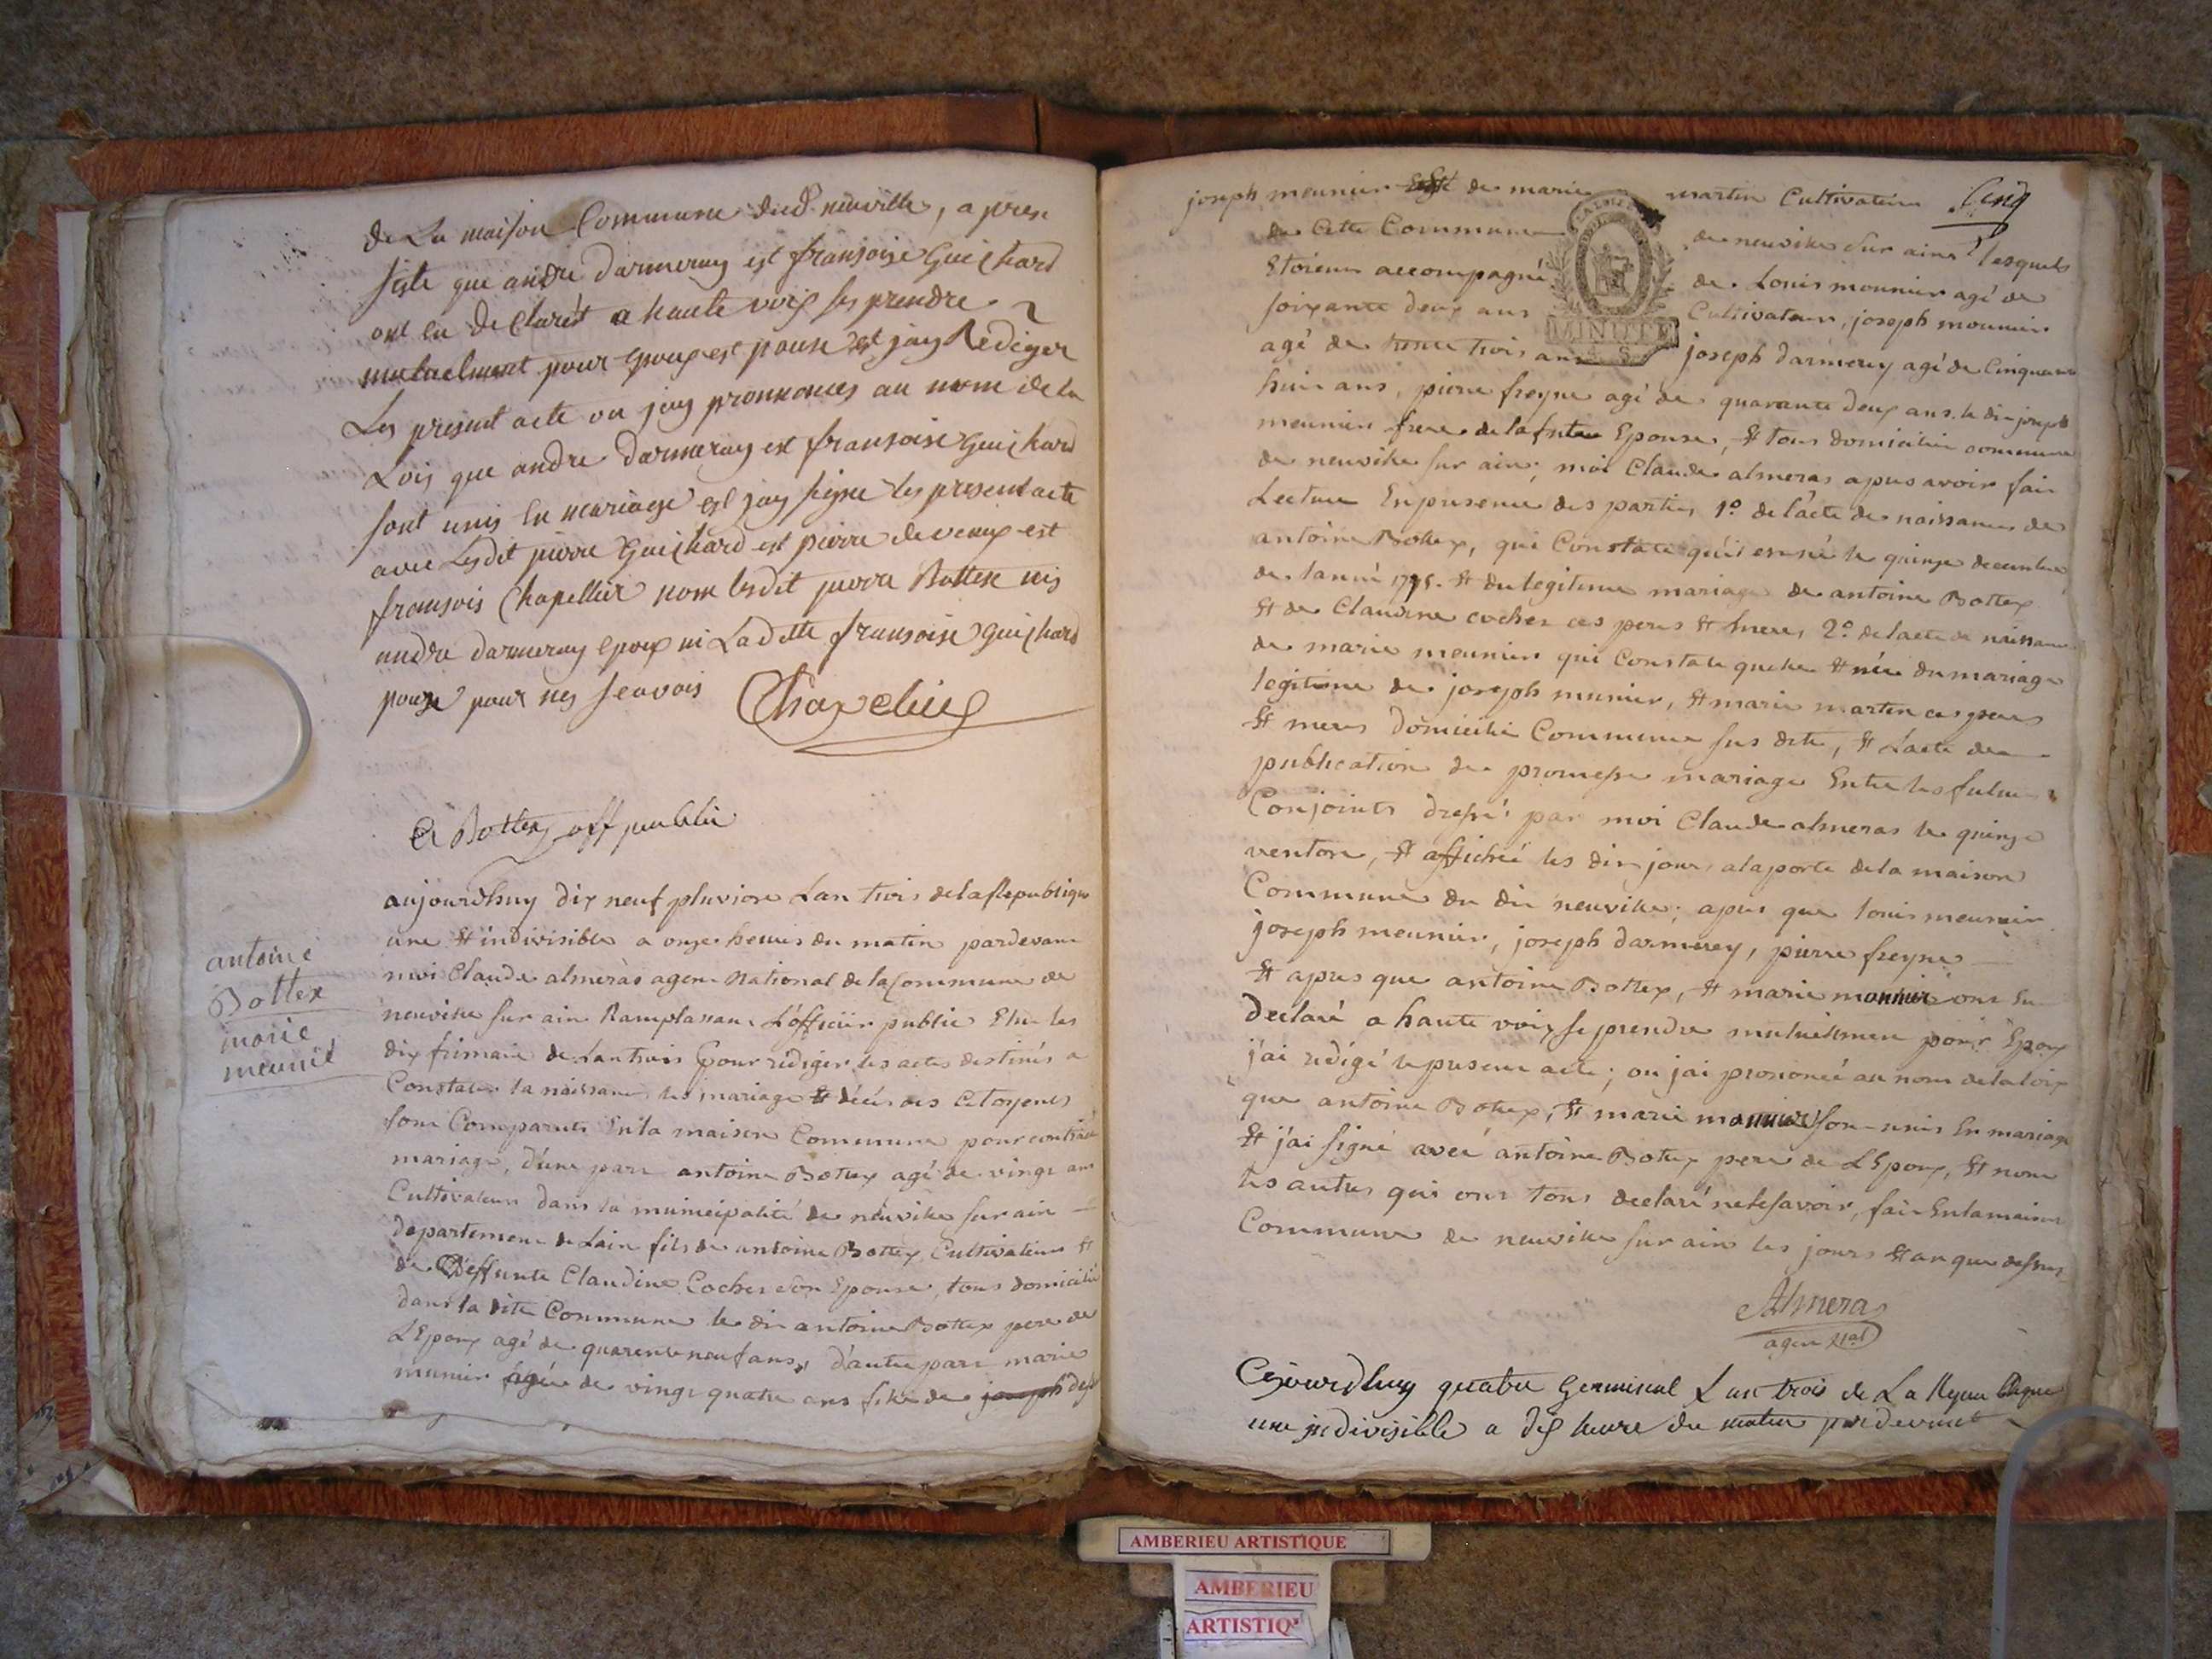 de La maison Commune dud. neuville, a pres
que andre darmeray est fransoise Guichard
ont en declarét a haute voix ses prendre
mutuelment pour Epoux est pouse est jay Rediger
Les present acte ou jay pronnonces au nom de la
Lois que andre darmeray est fransoise Guichard
sont unis en mariage est jay signe les present acte
avec Lesdit pierre Guichard est pierre deveaux est
fransois Chapellier nom lesdit pierre Bottex nis
andre darmeray epoux ni Ladette fransoise Guichard
pouze pour nes seavois Chapeliés
Bottex off public
antoine
Bottex
marie
meunié
aujourdhuy dix neuf pluviose Lan trois de la Republique
une et indivisible a onze heures du matin pardevant
moi Claude almeras agent National de la Commune de
neuville sur ain Ramplassant L'officier public Elu les
dix frimaire de Lan trois pour rediger les actes destinés a
Constater la naissance les mariage et décés des Citoyens
sont Comparuts En la maison Commune pour contracté
mariage, d'une part antoine Bottex agé de vingt ans
Cultivateur dans la municipalité de neuville sur ain
departement de Lain fils de antoine Bottex Cultivateur et
de Deffunte Claudine Cocher son Epouse, tous domicilié
dans la dite Commune le dit antoine Bottex pere de
L'Epoux agé de quarente neuf ans, d'autre part marie
munier agée de vingt quatre ans fille de joseph deft
joseph meunier de marie martin Cultivateur Cinq
de Cette Commune de neuville sur ain lesquels
Etoient accompagné de Louis mounier agé de
soixante deux ans Cultivateur, joseph mounier
MINUTE
agé de trente trois ans joseph darmerey agé de Cinquante
huit ans, pierre freyne agé de quarante deux ans. le dit joseph
meunier frere de la future Epouse, et tous domicilier commune
de neuville sur ain; moi Claude almeras apres avoir fait
Lecture En presence des parties 1º de l'acte de naissance de
antoine Bottex, qui Constate qu'il est né le quinze decembre
de l'anné 1775. et du legitime mariage de antoine Bottex
et de Claudine cocher ces peres et mere, 2º de l'acte de naissance
de marie meunier qui Constate quelle et née du mariage
legitime de joseph munier, et marie martin ces peres
et meres domicilié Commune sus dite, et L'acte de
publication de promesse mariage Entre les future
Conjoints dressé par moi Claude almeras le quinze
ventose, et affiché les dit jour a la porte de la maison
Commune du dit neuville; apres que louis meunier
joseph meunier, joseph darmerey, pierre freyne
et apres que antoine Bottex, et marie monnier ont En
declaré a haute voix se prendre mutuellement pour Epoux
j'ai redigé le present acte; ou j'ai prononcé au nom de la loix
que antoine Bottex, et marie monnier sont unis En mariage
et j'ai signé avec antoine Bottex pere de L'Epoux, et nom
les autres qui ont tous declaré ne le savoir, fait En la maison
Commune de neuville sur ain les jours et an que dessus
Almeras
agen Nal
Cejourdhuy quatre Germinal Lan trois de La Republique
une indivisible a dix heure du matin par devant
AMBERIEU ARTISTIQUE
AMBERIEU
ARTISTIQ